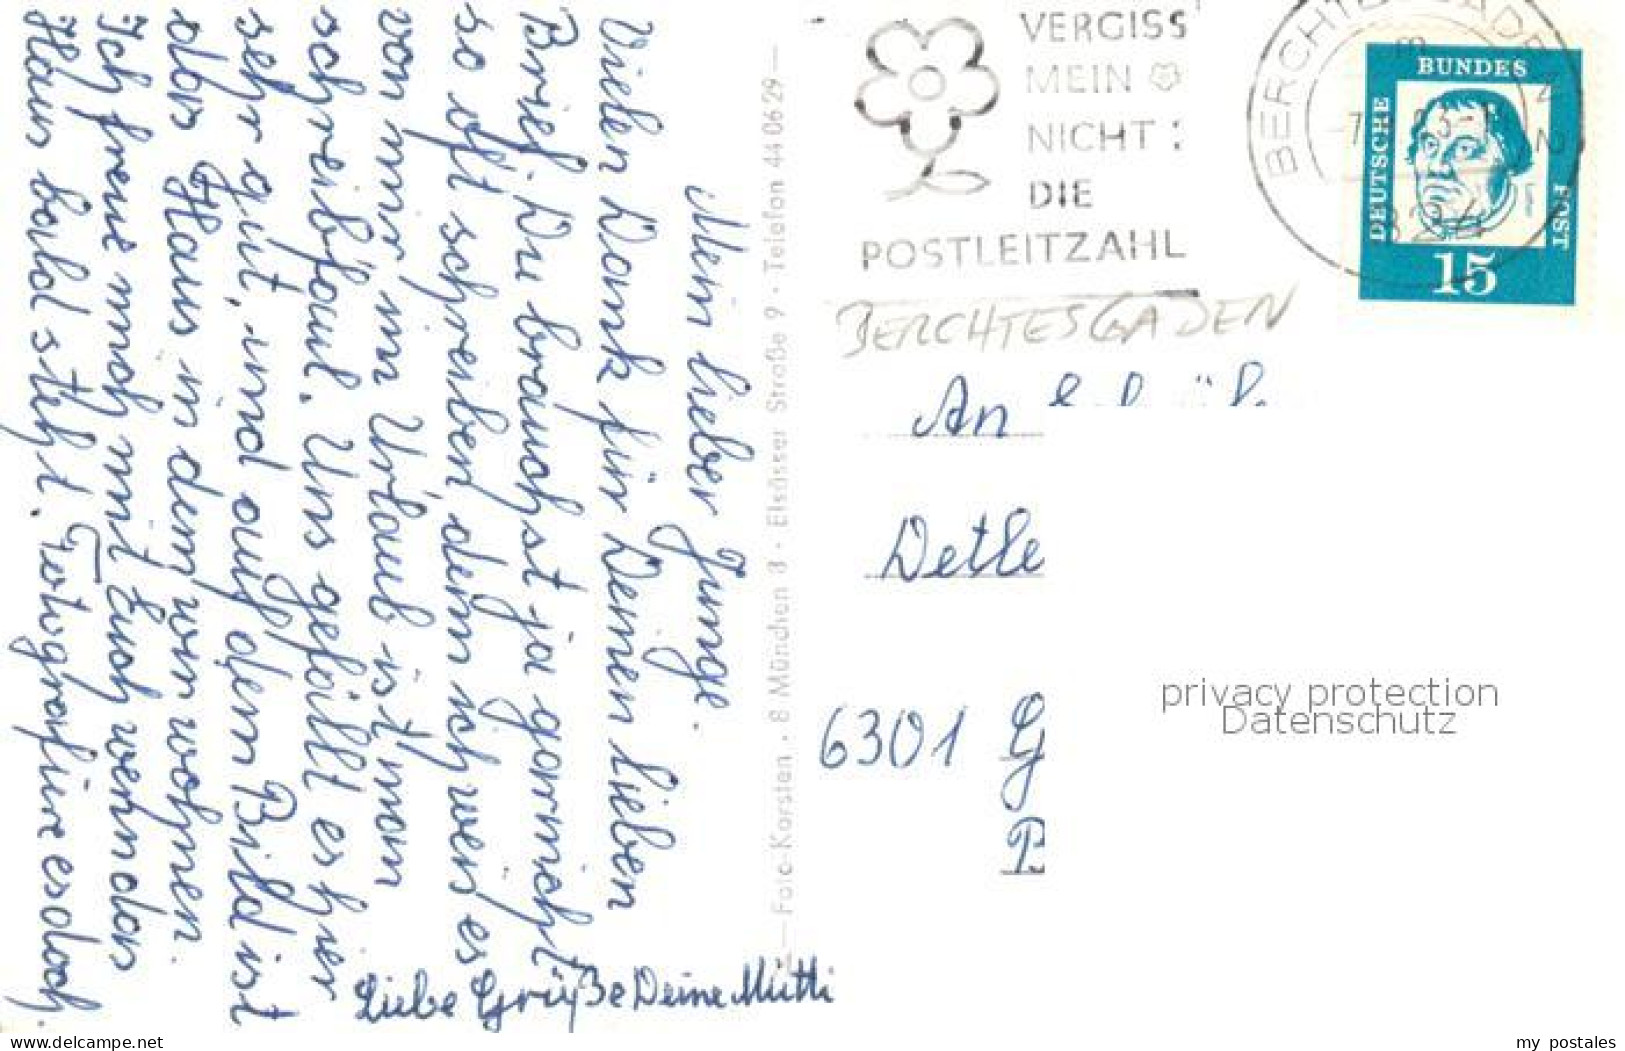 Mein lieber Junge.
Vielen Dank für Deinen lieben
Brief. Du brauchst ja garnicht
so oft schreiben denn ich weis es
von mir im Urlaub ist man
schreibfaul. Uns gefällt es hier
sehr gut, und auf dem Bild ist
das Haus in dem wir wohnen.
Ich freue mich mit Euch wenn das
Haus bald steht. Fotografiere es doch.
Liebe Grüße Deine Mutti
Foto-Karsten · 8 München 8 · Elsässer Straße 9 · Telefon 44 06 29
VERGISS
MEIN
NICHT:
DIE
POSTLEITZAHL
BERCHTESGADEN
DEUTSCHE
BUNDES
POST
15
BERCHTESGADEN
An
Detle
6301 G
P
privacy protection
Datenschutz
delcampe.net
my_postales